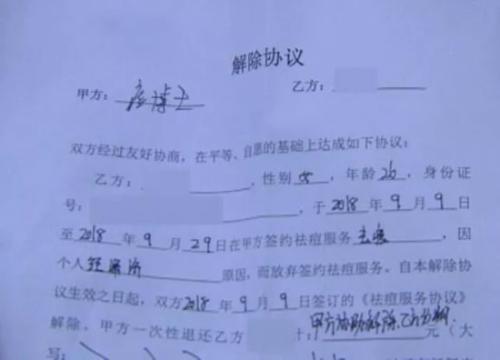 解除协议
甲方：痘博士 乙方：
双方经过友好协商，在平等、自愿的基础上达成如下协议：
乙方： ，性别 女 ，年龄 26 ，身份证
号： ，于 2018 年 9 月 9 日
至 2018 年 9 月 29 日在甲方签约祛痘服务 ，因
个人 经济 原因，而放弃签约祛痘服务。自本解除协
议生效之日起，双方 2018 年 9 月 9 日签订的《祛痘服务协议》
解除。甲方一次性退还乙方 甲方协助解除乙方分期 元（大
写：